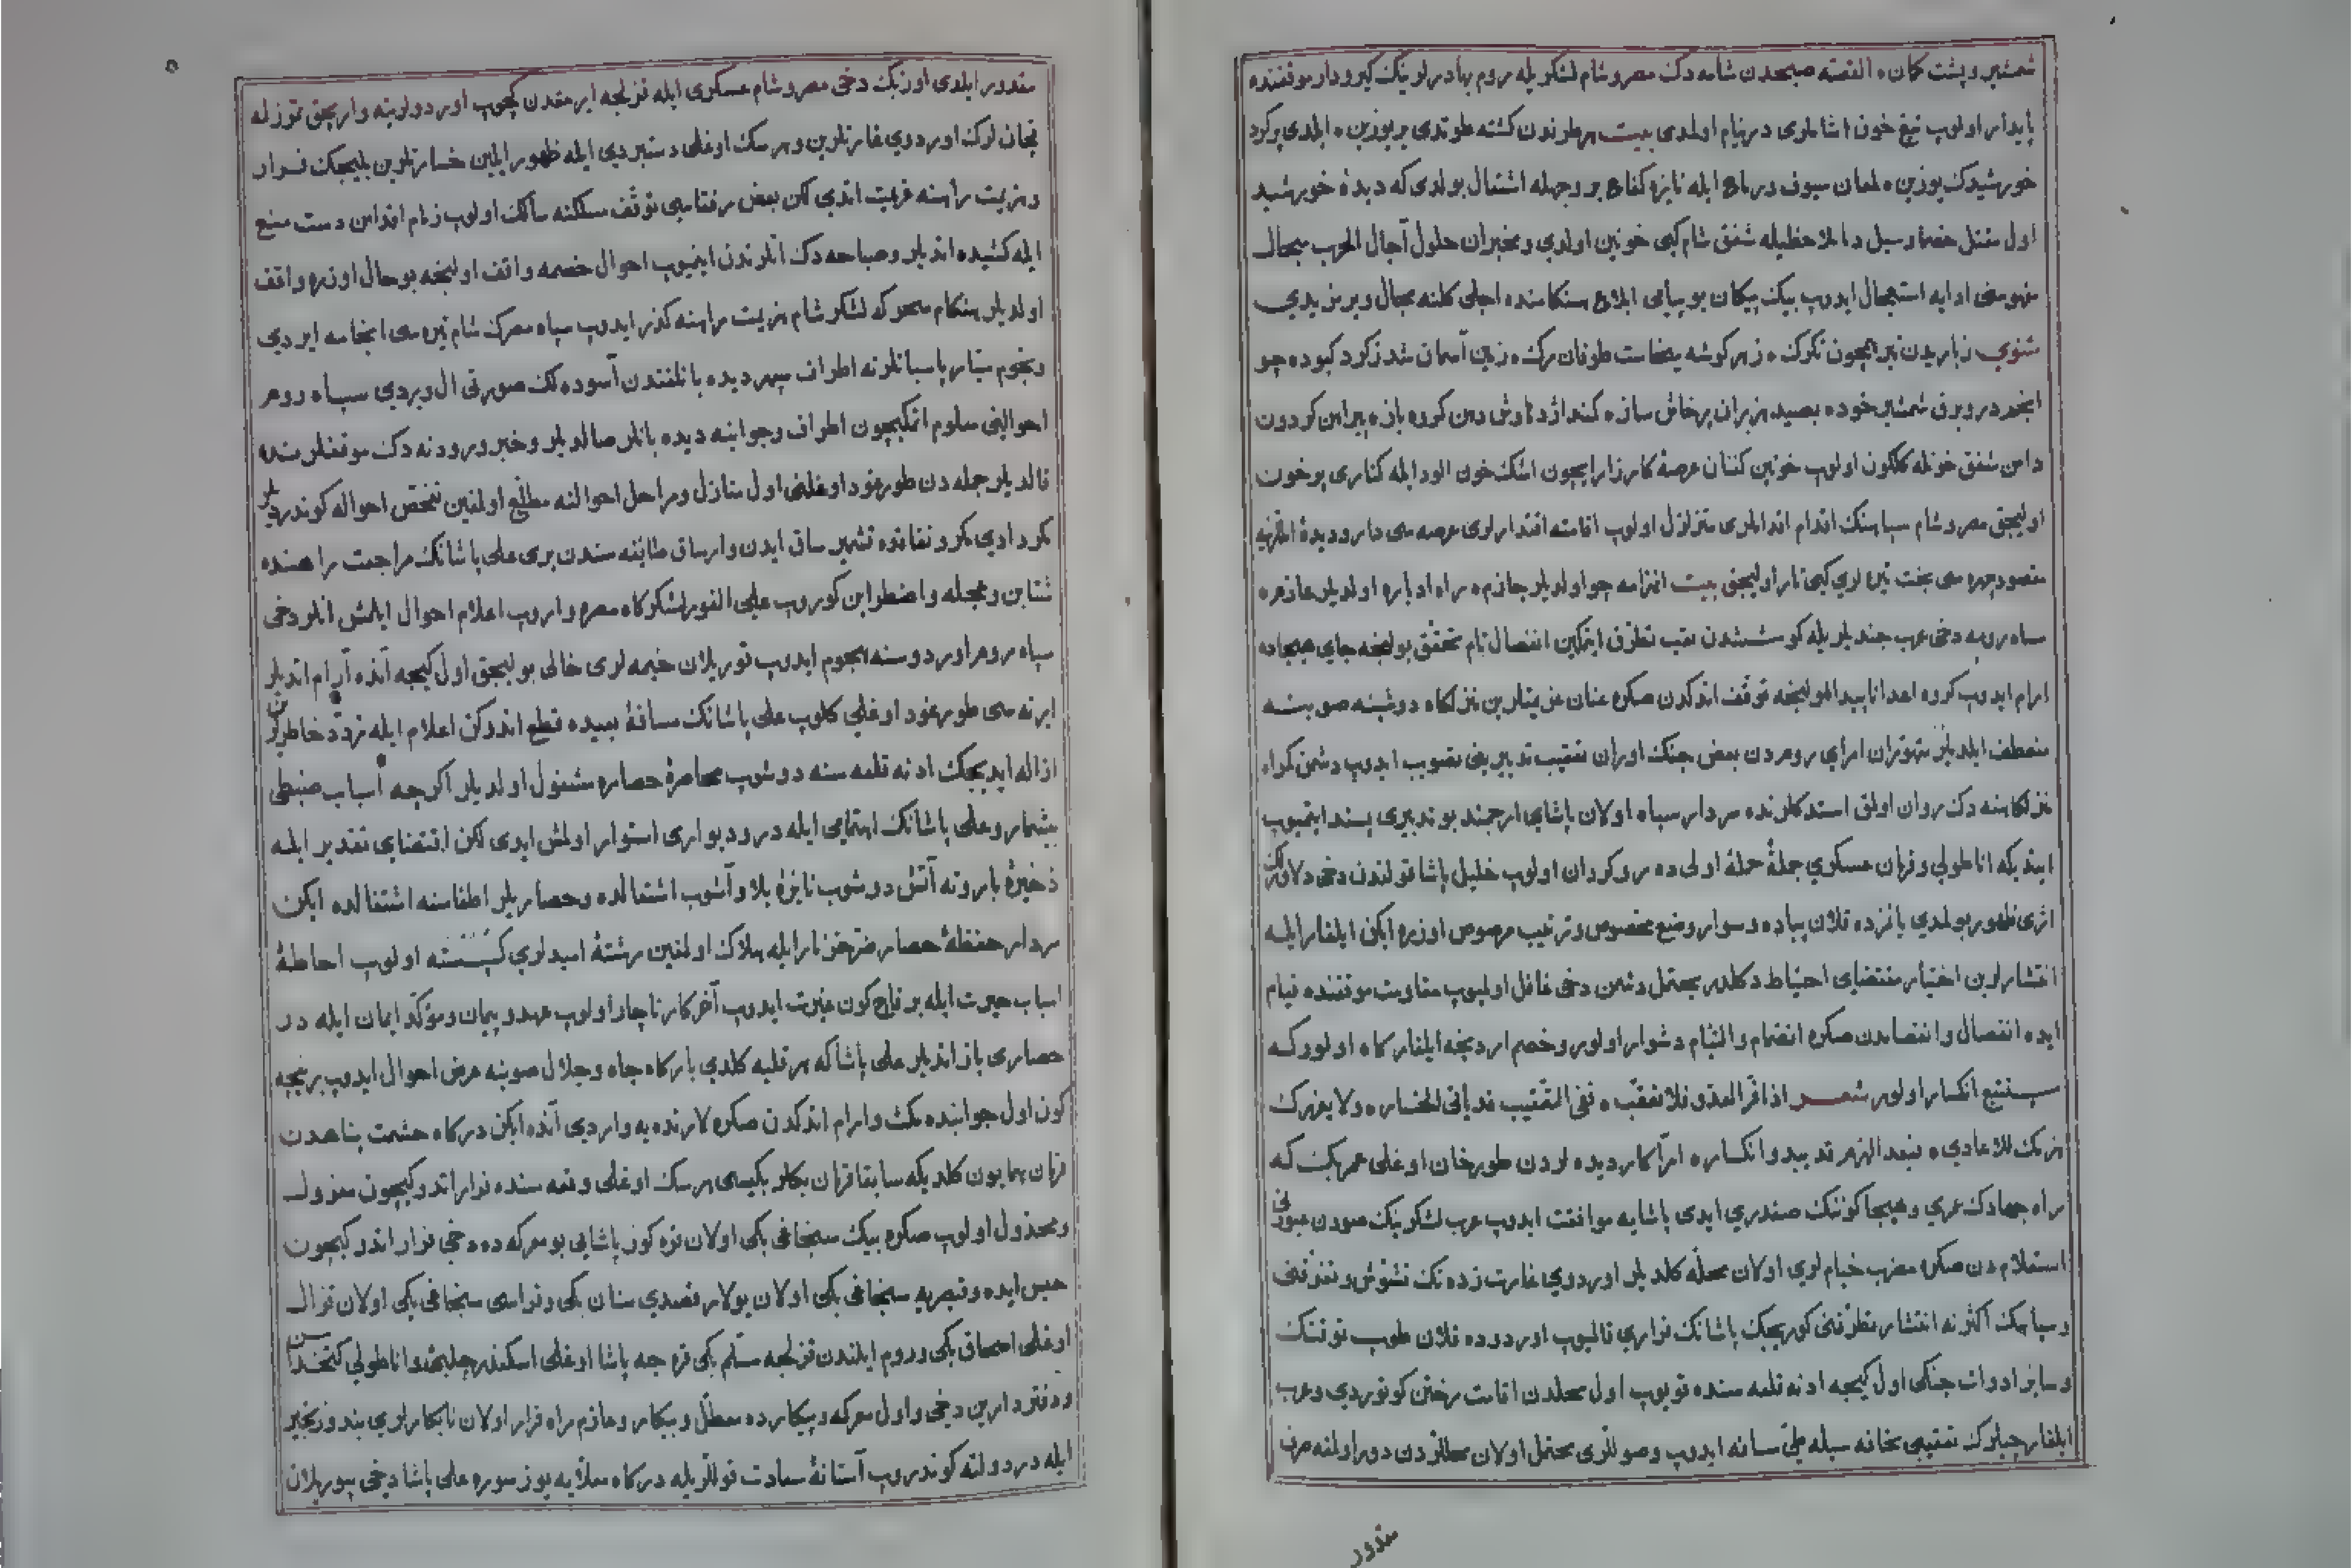 شمشیر و پشت کمان القصه صبحدن شامه دک مصر و شام لشکریله روم بهادرلرینک کیرودار موقفنده
پایدار اولوب تیغ خون اشاملری درنیام اولمدی بیت هر طرفدن کشته طوتدی یر یوزین ایلدی پر کرد
خورشیدک یوزین لمعان سیوف و رماح ایله نایره کفاح بر وجهله اشتعال بولدی که دیده خورشید
اول مقتل خضماو سیل دما ملاحظه‌سیله شفق شام کبی خونین اولدی و مخبران حلول آجال الحرب سجال
مفهومنی ادایه استعجال ایدوب پیک پیکان بو پیامی ابلاغ هنکامنده اجلی کلنه مجال ویرمزیدی
مثنوی ز باریدن تیر همچون تکرک ز هر کوشه میخاست طوفان مرک زمین آسمان شد ز کرد کبود چو
انجم درو برق شمشیر خود بصید هزبران پرخاش ساز کمند اژدهاوش دهن کرده باز پیراهن کردون
دامن شفق خونله کلکون اولوب خونین کفنان عرصه کارزار ایچون اشک خون الود ایله کناری پر خون
اولیجق مصر و شام سپاهنک اقدام اقداملری متزلزل اولوب اقامته اقتدارلری عرصه سی دار و دیده املرینه
مقصود چهره سی بخت تیره لری کبی تار اولیجق بیت انهزامه جو اولدیلر جازم راه ادباره اولدیلر عازم
سپاه رومه دخی عرب جندیلریله کوششدن تعب تطرق ایتمکین انفصال تام تحقق بولنجه جای هیجاده
ارام ایدوب کروه اعدا ناپیدا اولیجه توقف اتدکدن صکره عنان عزیمتلرین نزلکاه دوشینه صوبنه
منعطف ایلدیلر متهوران امرای رومدن بعض جنک اوران تعقیب تدبیرینی تصویب ایدوب دشمن کمراه
نزلکاهنه دک روان اولمق استدکلرنده سردار سپاه اولان پاشای ارجمند بو تدبیری پسند ایتمیوب
ایتدیکه اناطولی و قرمان عسکری جمله حمله اولی ده روکردان اولوب خلیل پاشا قولندن دخی دلاورلک
اثری ظهور بولمدی یانمزده قلان پیاده و سوار وضع مخصوص و ترتیب مرصوص اوزره ایکن ایلغار ایله
انتشارلرین اختیار مقتضای احتیاط دکلدر محتمل دشمن دخی غافل اولمیوب مقاومت موقفنده قیام
ایده انفصال و انفصامدن صکره انضمام و التیام دشوار اولور و خصم اردنجه ایلغار کاه اولور که
مستتبع انکسار اولور شعر اذا فر العدو فلا تعقب ففی التعقیب قد یأتی الخساره ولا یغررک
هزمک للاعادی فبعد الهزم قد یبدو انکساره امرا کار دیده لردن طورخان اوغلی عمر بک که
راه جهادک عمری و هیجا کوننک صفدری ایدی پاشایه موافقت ایدوب عرب لشکرینک صودن عبورنی
استعلامدن صکره مضرب خیاملری اولان محله کلدیلر اوردوی غارت زده نک تشوش و تفرقنی
و سپاهک اکثرنه انتشار تطرقنی کوریجک پاشانک قراری قالمیوب اوردوده قلان طوب تفنک
و سایر ادوات جنکی اول کیجه ادنه قلعه سنده قویوب اول محلدن اقامت رختن کوتوردی و عرب
ایلغارجیلرک تعقیبی مخافه سیله طی مسافه ایدوب وصوللری محتمل اولان محللردن دور اولمغه صرف
مقدور
مقدور ایلدی اوزبک دخی مصر و شام عسکری ایله قزلجه ایرمقدن کچوب اوردولرینه واریجق قوزله
قچان لرک اوردوی غارتلرین و هرسک اوغلی دستبردی ایله ظهور ایلین خسارتلرین بلیجک فرار
و هزیمت راهنه عزیمت اتدی لکن بعض رفقا سی توقف مسلکنه سالک اولوب زمام اقدامن دست منع
ایله کشیده اتدیلر و صباحه دک اتلرندن اینمیوب احوال خصمه واقف اولنجه بو حال اوزره واقف
اولدیلر هنکام سحر که لشکر شام هزیمت راهنه کذر ایدوب سپاه سحرک شام تیره سی انجامه ایردی
و نجوم سیار پاسبانلرنه اطراف سپهر دیده بانلغندن آسوده لک صورتی ال ویردی سپاه روم
احوالنی معلوم اتمکیچون اطراف و جوانبه دیده بانلر صالدیلر و خبر ورودنه دک موقفلرنده
قالدیلر جمله دن طورغود اوغلنی اول منازل و مراحل احوالنه مطلع اولمغین تفحص احواله کوندردیلر
مکرو ادبی مکر و نفاقده تشمیر ساق ایدن وارساق طایفه سندن بری علی پاشانک مراجعت راهنده
شتابن و عجله و اضطرابن کوروب علی الفور لشکرکاه مصره واروب اعلام احوال ایلمش انلر دخی
سپاه روم اوردوسنه هجوم ایدوب قوریلان خیمه لری خالی بولیجق اول کیجه آنده آرام اتدیلر
ایرته سی طورغود اوغلی کلوب علی پاشانک مسافه بعیده قطع اتدوکن اعلام ایله تردد خاطرلرین
ازاله ایدیجک ادنه قلعه سنه دوشوب محاصره حصاره مشغول اولدیلر اکرچه اسباب ضبطی
بیشمار و علی پاشانک اهتمامی ایله در و دیواری استوار اولمش ایدی لکن اقتضای تقدیر ایله
ذخیره باروته آتش دوشوب نایره بلا و آشوب اشتعالده و حصاریلر اطفاسنه اشتغالده ایکن
سردار حفظه حصار ضرخز نار ایله هلاک اولمغین رشته امیدلری کسسته اولوب احاطه
اسباب حیرت ایله بر قاچ کون غیرت ایدوب آخر کار ناچار اولوب عهد و پیمان و مؤکد ایمان ایله در
حصاری باز اتدیلر علی پاشا که هرقلیه کلدی بارکاه جاه و جلال صوبنه عرض احوال ایدوب برنیجه
کون اول جوانبده مکث و ارام اتدکدن صکره لارنده یه واردی آنده ایکن درکاه حشمت پناهدن
فرمان همایون کلدیکه سابقا قرمان بکلربکیسی هرسک اوغلی وقعه سنده فرار اتدوکیچون معزول
و مخذول اولوب صکره بیک سنجاغی بکی اولان قره کوز پاشایی بو معرکه ده دخی فرار اتدوکیچون
حبس ایده و قیصریه سنجاغی بکی اولان یولار قصدی سنان بکی و قراسی سنجاغی بکی اولان قزل
اوغلی اسحاق بکی و روم ایلندن قزلجه مسلم بکی قره جه پاشا اوغلی اسکندر چلبی و اناطولی کتخداسن
و دفتردارین دخی و اول معرکه و پیکارده معطل و بیکار و عازم راه فرار اولان نابکارلری بند و زنجیر
ایله در دولته کوندروب آستانه سعادت قوللریله درکاه معلایه یوز سوره علی پاشا دخی بیوریلان